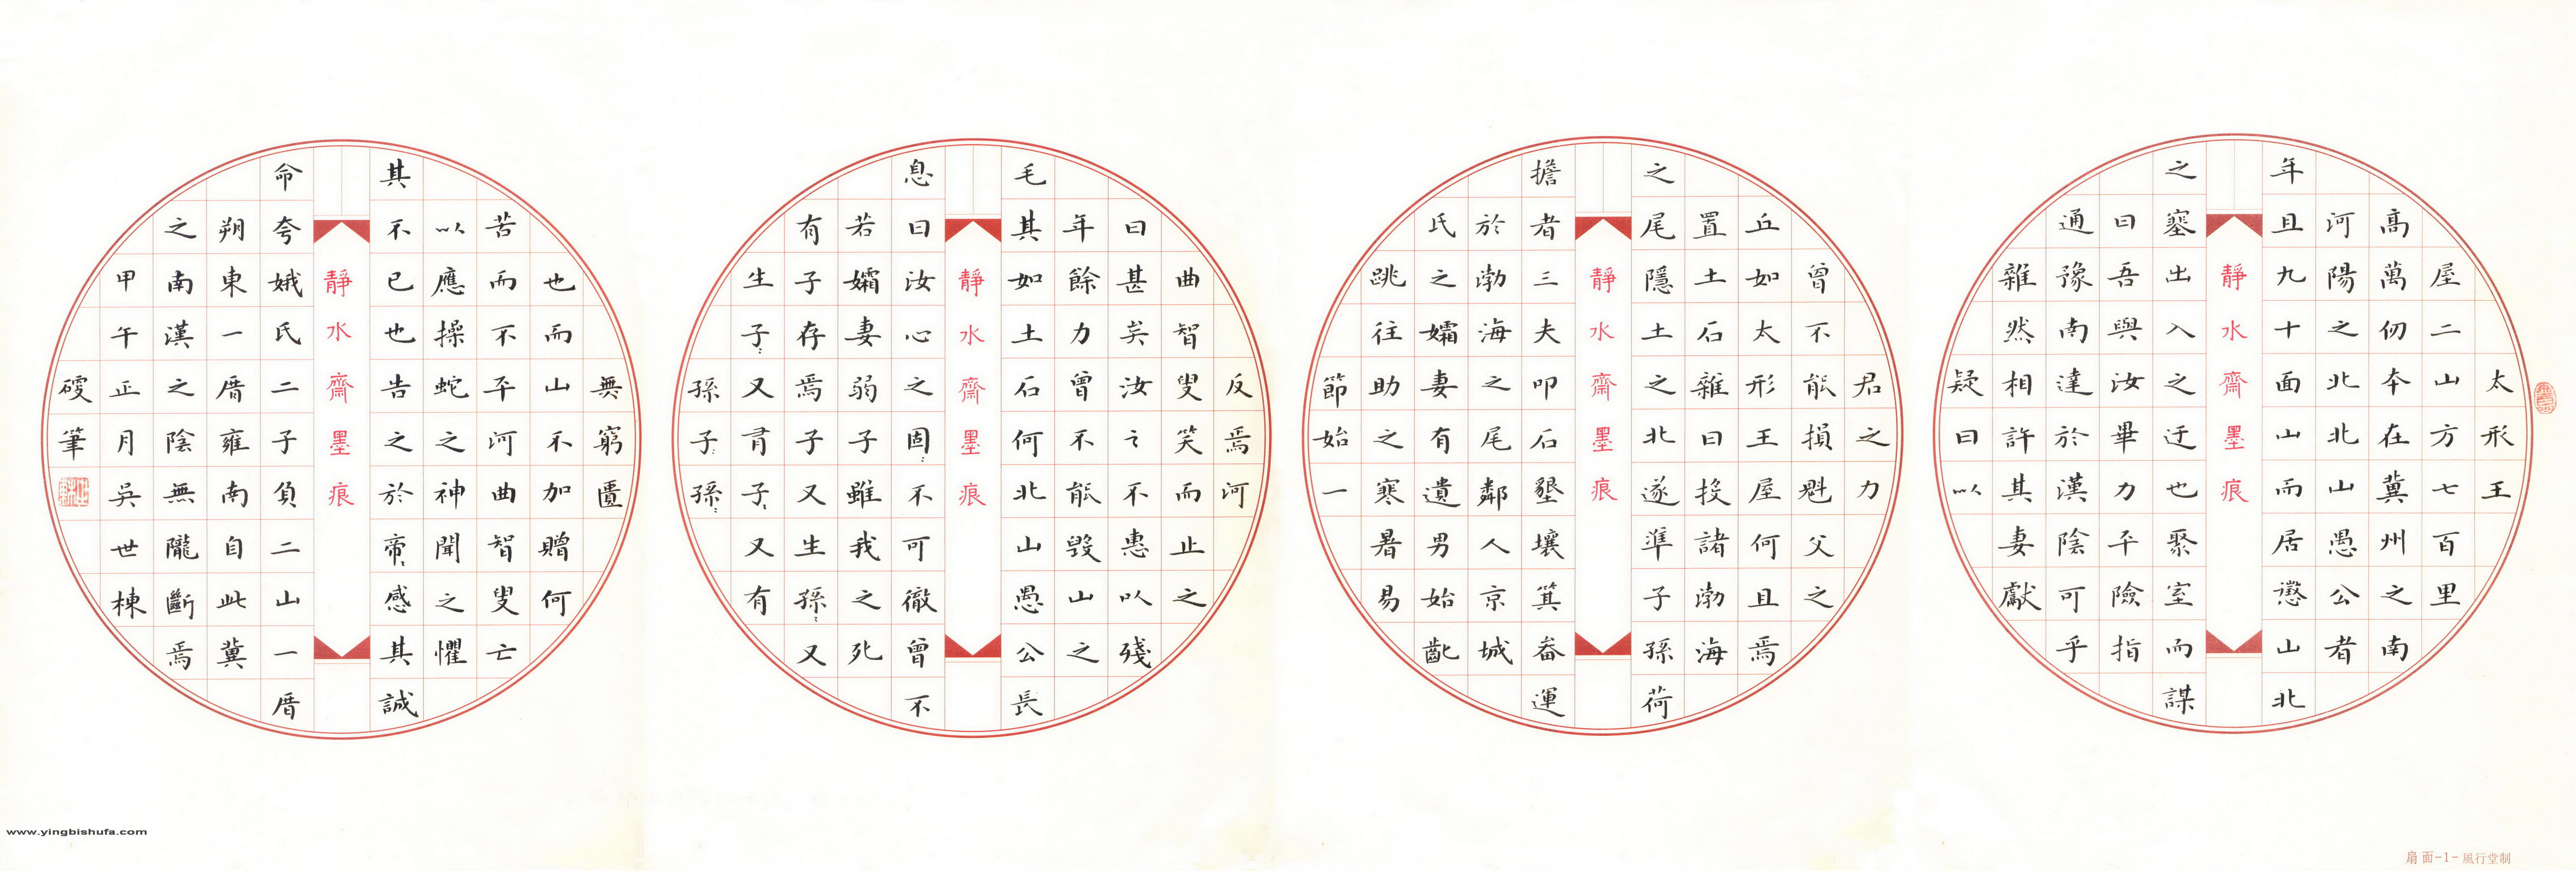 太形王
屋二山方七百里
高萬仞本在冀州之南
河陽之北北山愚公者
年且九十面山而居懲山北
靜水齋墨痕
之塞出入之迂也聚室而謀
曰吾與汝畢力平險指
通豫南達於漢陰可乎
雜然相許其妻獻
疑曰以
君之力
曾不能損魁父之
丘如太形王屋何且焉
置土石雜曰投諸渤海
之尾隱土之北遂準子孫荷
靜水齋墨痕
擔者三夫叩石墾壤箕畚運
於渤海之尾鄰人京城
氏之孀妻有遺男始齔
跳往助之寒暑易
節始一
反焉河
曲智叟笑而止之
曰甚矣汝之不惠以殘
年餘力曾不能毀山之
毛其如土石何北山愚公長
靜水齋墨痕
息曰汝心之固固不可徹曾不
若孀妻弱子雖我之死
有子存焉子又生孫孫又
生子子又有子子又有
孫子子孫孫
無窮匱
也而山不加贈何
苦而不平河曲智叟亡
以應操蛇之神聞之懼
其不已也告之於帝帝感其誠
靜水齋墨痕
命夸娥氏二子負二山一厝
朔東一厝雍南自此冀
之南漢之陰無隴斷焉
甲午正月吳世棟
硬筆
www.yingbishufa.com
扇面-1-風行堂制